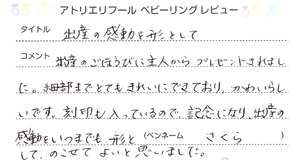 アトリエリフール ベビーリングレビュー
タイトル 出産の感動を形として
コメント 出産のごほうびに主人からプレゼントされまし
た。細部までとてもきれいにできており、かわいらし
いです。刻印も入っているので、記念になり、出産の
感動をいつまでも形と (ペンネーム さくら )
して、のこせてよいと思いました。